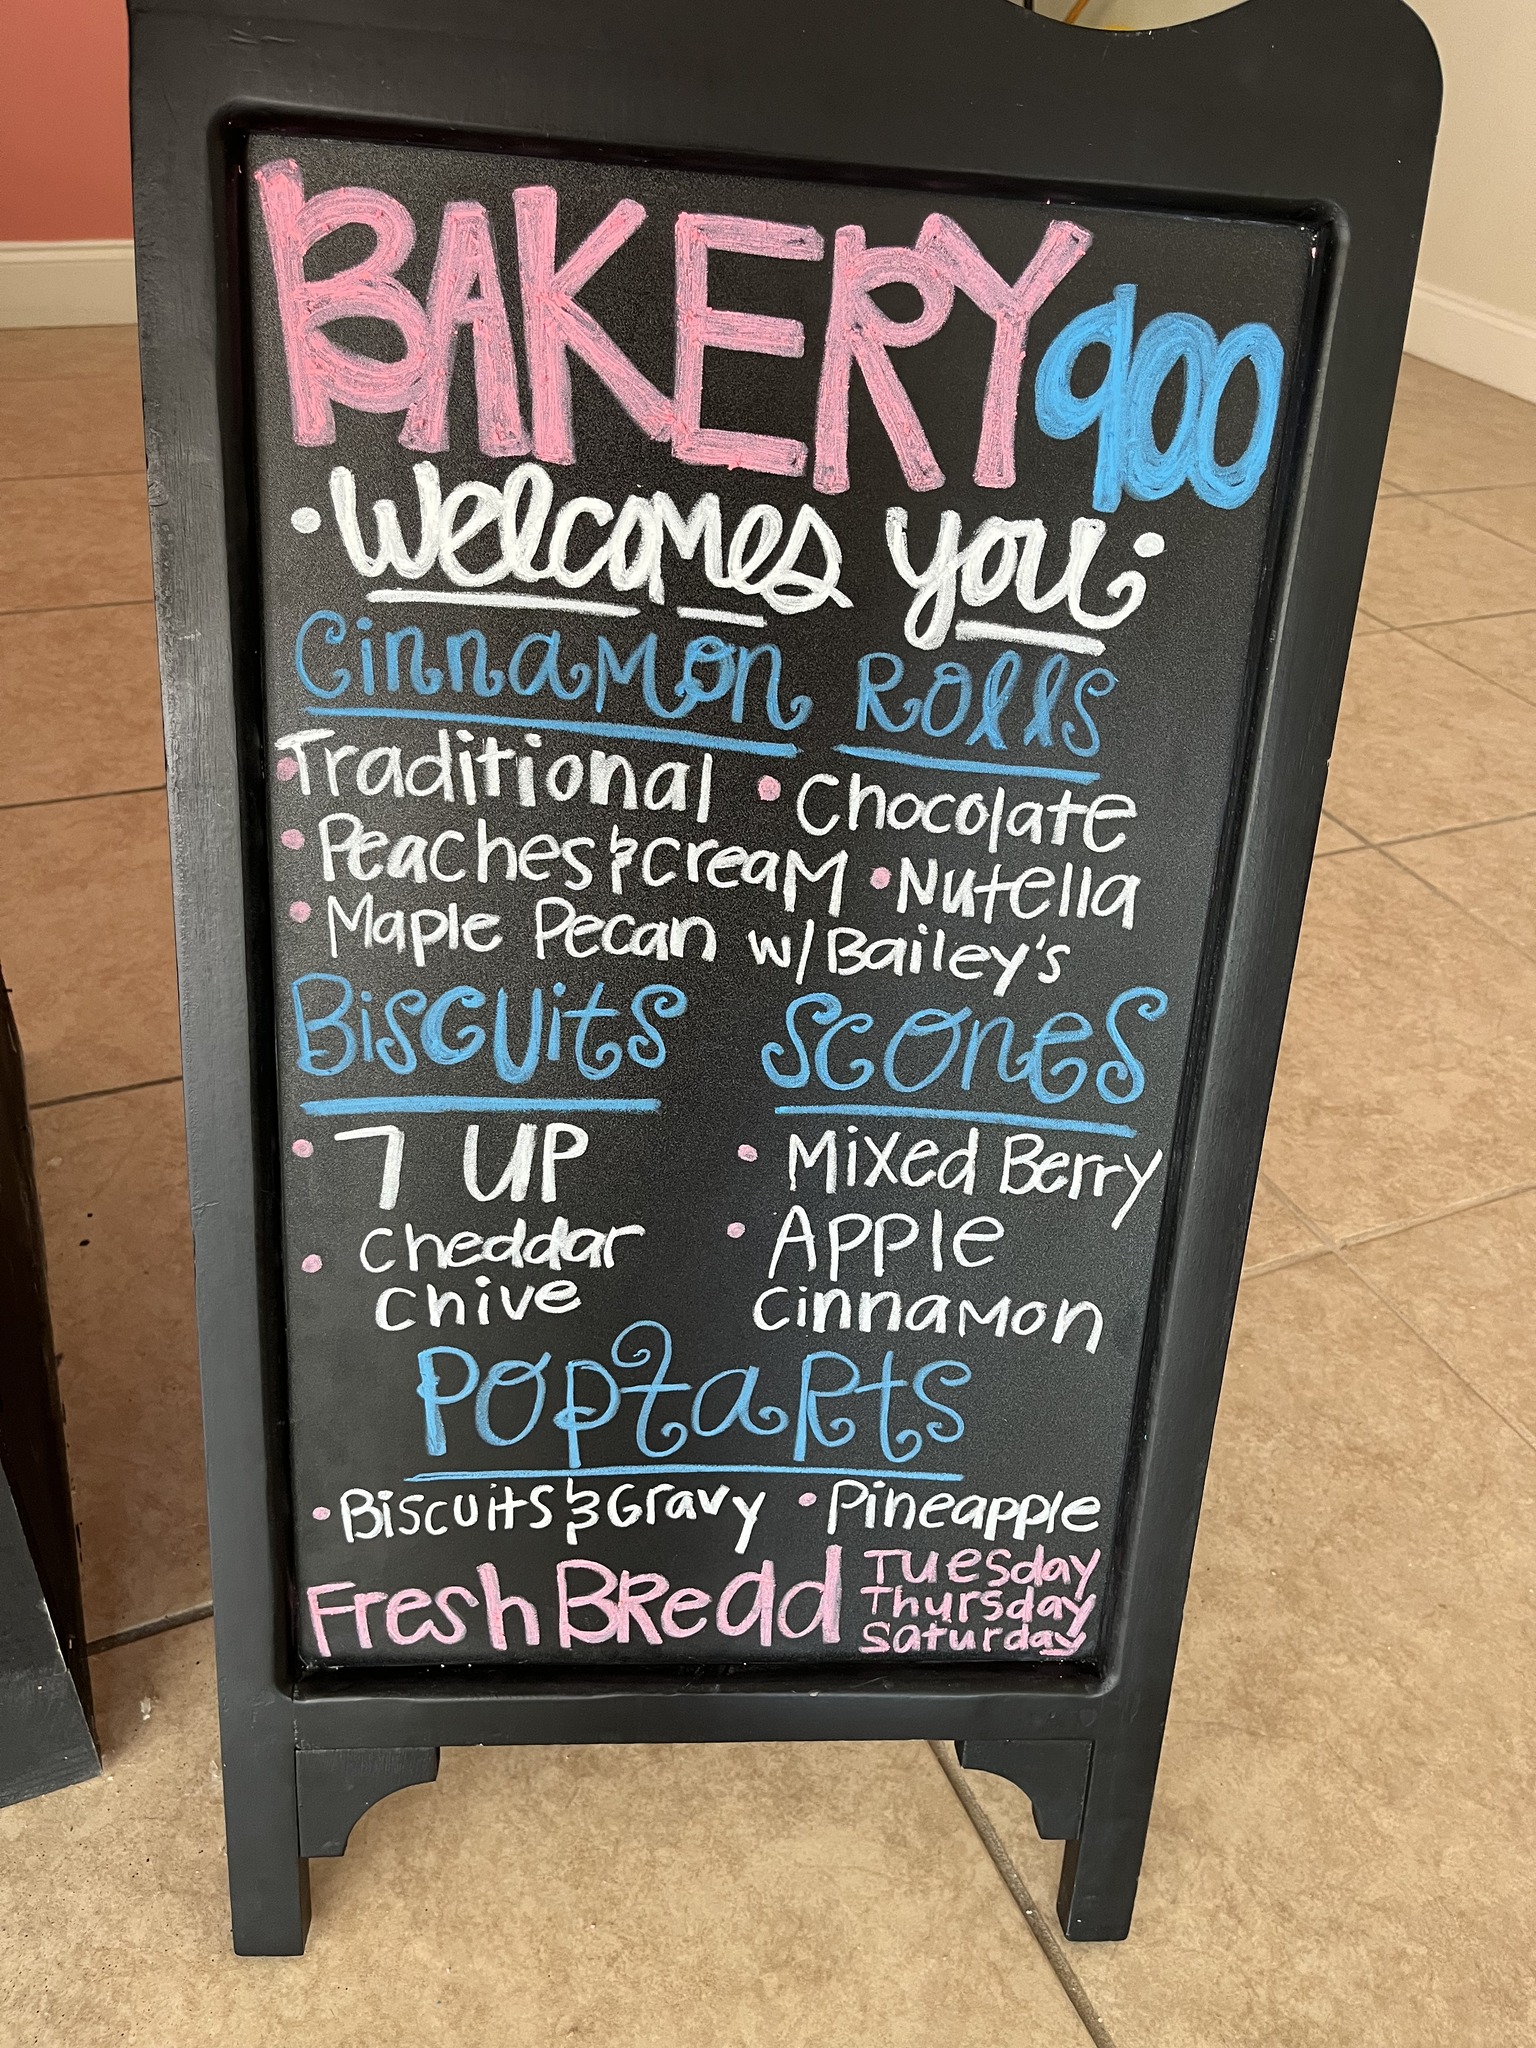 BAKERY 900
• Welcomes you •
Cinnamon Rolls
• Traditional • Chocolate
• Peaches & Cream • Nutella
• Maple Pecan w/ Bailey's
Biscuits
• 7 UP
• Cheddar
Chive
Scones
• Mixed Berry
• Apple
Cinnamon
Poptarts
• Biscuits & Gravy • Pineapple
Fresh Bread
Tuesday
Thursday
Saturday